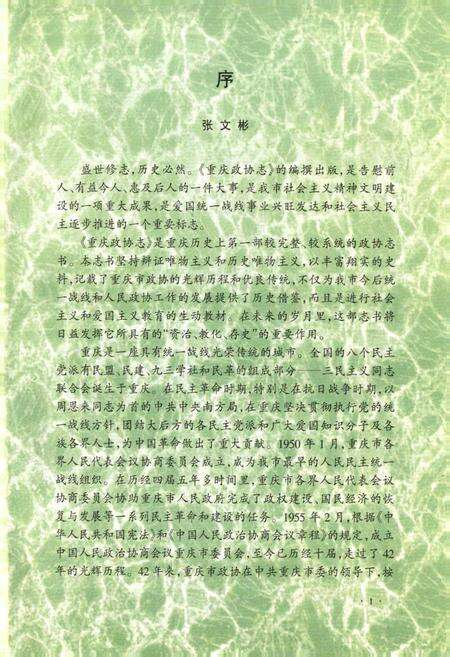 序
张文彬
盛世修志，历史必然。《重庆政协志》的编撰出版，是告慰前
人、有益今人、惠及后人的一件大事，是我市社会主义精神文明建
设的一项重大成果，是爱国统一战线事业兴旺发达和社会主义民
主逐步推进的一个重要标志。
《重庆政协志》是重庆历史上第一部较完整、较系统的政协志
书。本志书坚持辩证唯物主义和历史唯物主义，以丰富翔实的史
料，记载了重庆市政协的光辉历程和优良传统，不仅为我市今后统
一战线和人民政协工作的发展提供了历史借鉴，而且是进行社会
主义和爱国主义教育的生动教材。在未来的岁月里，这部志书将
日益发挥它所具有的“资治、教化、存史”的重要作用。
重庆是一座具有统一战线光荣传统的城市。全国的八个民主
党派有民盟、民建、九三学社和民革的组成部分——三民主义同志
联合会诞生于重庆。在民主革命时期，特别是在抗日战争时期，以
周恩来同志为首的中共中央南方局，在重庆坚决贯彻执行党的统
一战线方针，团结大后方的各民主党派和广大爱国知识分子及各
族各界人士，为中国革命做出了重大贡献。1950年1月，重庆市各
界人民代表会议协商委员会成立，成为我市最早的人民民主统一
战线组织。在历经四届五年多时间里，重庆市各界人民代表会议
协商委员会协助重庆市人民政府完成了政权建设、国民经济的恢
复与发展等一系列民主革命和建设的任务 1955年2月，根据《中
华人民共和国宪法》和《中国人民政治协商会议章程》的规定，成立
中国人民政治协商会议重庆市委员会，至今已历经十届，走过了42
年的光辉历程。42年来，重庆市政协在中共重庆市委的领导下，按
·1·